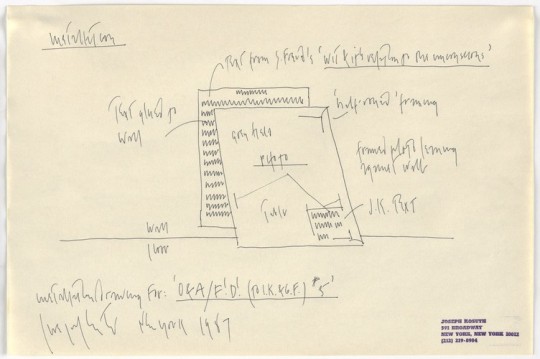 installation
Text from S. Freud's 'Wit & its relation to the unconscious'
Text glued to
Wall
'half-round' framing
photo
framed photo leaning
against wall
Table
J.K. Text
Wall
floor
installation drawing for: 'O.& A./F!D! (to I.K. & G.F.) #5'
New York 1987
JOSEPH KOSUTH
591 BROADWAY
NEW YORK, NEW YORK 10012
(212) 219-8984